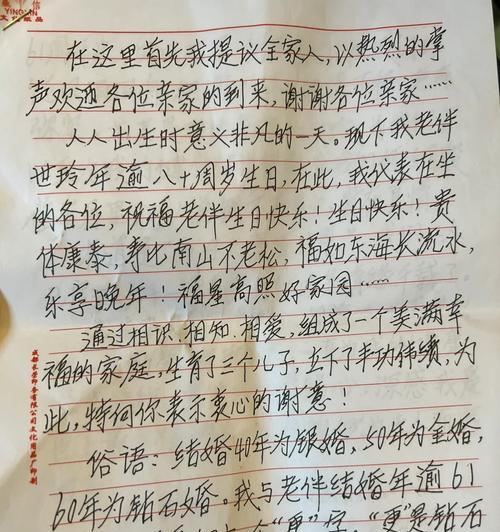 YINGXIN
在这里首先我提议全家人，以热烈的掌
声欢迎各位亲家的到来，谢谢各位亲家……
人人出生时意义非凡的一天。现下我老伴
世玲年逾八十周岁生日，在此，我代表在坐
的各位，祝福老伴生日快乐！生日快乐！贵
体康泰，寿比南山不老松，福如东海长流水，
乐享晚年！福星高照好家园……
通过相识、相知、相爱，组成了一个美满幸
福的家庭，生育了三个儿子，立下了丰功伟绩，为
此，特向你表示衷心的谢意！
俗语：结婚40年为银婚，50年为金婚，
60年为钻石婚。我与老伴结婚年逾61
个"更"字，"更"是钻石